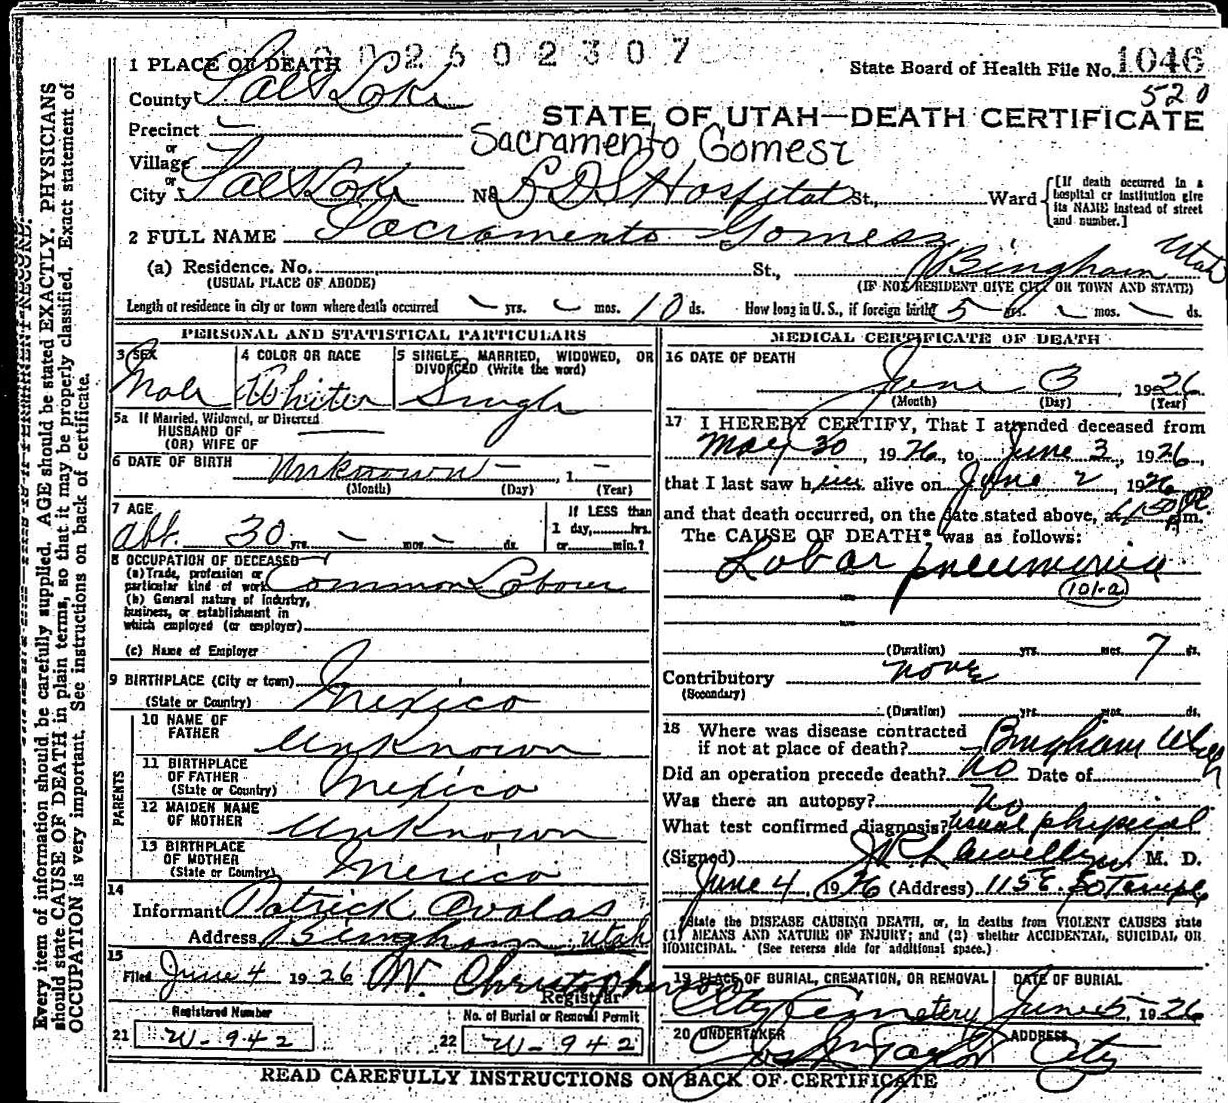 2602307
1 PLACE OF DEATH
State Board of Health File No. 1046
520
County Salt Lake
STATE OF UTAH—DEATH CERTIFICATE
Precinct —
or
Village
Sacramento Gomesz
or
City Salt Lake No LDS Hospital St., Ward
[If death occurred in a hospital or institution give its NAME instead of street and number.]
2 FULL NAME Sacramento Gomesz
(a) Residence. No. St., Bingham Utah
(USUAL PLACE OF ABODE) (IF NON RESIDENT GIVE CITY OR TOWN AND STATE)
Length of residence in city or town where death occurred — yrs. — mos. 10 ds. How long in U. S., if foreign birth 5 yrs. — mos. — ds.
PERSONAL AND STATISTICAL PARTICULARS
3 SEX
Male
4 COLOR OR RACE
White
5 SINGLE, MARRIED, WIDOWED, OR DIVORCED (Write the word)
Single
5a If Married, Widowed, or Divorced
HUSBAND OF
(OR) WIFE OF
6 DATE OF BIRTH Unknown — , 1 —
(Month) (Day) (Year)
7 AGE
abt. 30 yrs. — mos. — ds.
If LESS than
1 day, hrs.
or min.?
8 OCCUPATION OF DECEASED
(a) Trade, profession or
particular kind of work Common Labour
(b) General nature of Industry,
business, or establishment in
which employed (or employer)
(c) Name of Employer
9 BIRTHPLACE (City or town)
(State or Country) Mexico
PARENTS
10 NAME OF
FATHER Unknown
11 BIRTHPLACE
OF FATHER
(State or Country) Mexico
12 MAIDEN NAME
OF MOTHER Unknown
13 BIRTHPLACE
OF MOTHER
(State or Country) Mexico
14
Informant Patrick Avalas
Address Bingham Utah
15
Filed June 4 1926 W. Christopherson
Registrar
Registered Number
21 W-942
No. of Burial or Removal Permit
22 W-942
MEDICAL CERTIFICATE OF DEATH
16 DATE OF DEATH
June 3 1926
(Month) (Day) (Year)
17 I HEREBY CERTIFY, That I attended deceased from
May 30, 1926, to June 3, 1926,
that I last saw him alive on June 2, 1926
and that death occurred, on the date stated above, at m.
The CAUSE OF DEATH* was as follows:
Lobar pneumonia
101-a
(Duration) yrs. mos. 7 ds.
Contributory none
(Secondary)
(Duration) yrs. mos. ds.
18 Where was disease contracted
if not at place of death? Bingham Utah
Did an operation precede death? no Date of
Was there an autopsy? No
What test confirmed diagnosis? usual physical
(Signed) M. D.
June 4, 1926 (Address) 115 E. So Temple
*State the DISEASE CAUSING DEATH, or, in deaths from VIOLENT CAUSES state
(1) MEANS AND NATURE OF INJURY; and (2) whether ACCIDENTAL, SUICIDAL OR
HOMICIDAL. (See reverse side for additional space.)
19 PLACE OF BURIAL, CREMATION, OR REMOVAL
City Cemetery
DATE OF BURIAL
June 5, 1926
20 UNDERTAKER
Jos Wm Taylor
ADDRESS
City
READ CAREFULLY INSTRUCTIONS ON BACK OF CERTIFICATE
Every item of information should be carefully supplied. AGE should be stated EXACTLY. PHYSICIANS
should state CAUSE OF DEATH in plain terms, so that it may be properly classified. Exact statement of
OCCUPATION is very important. See instructions on back of certificate.